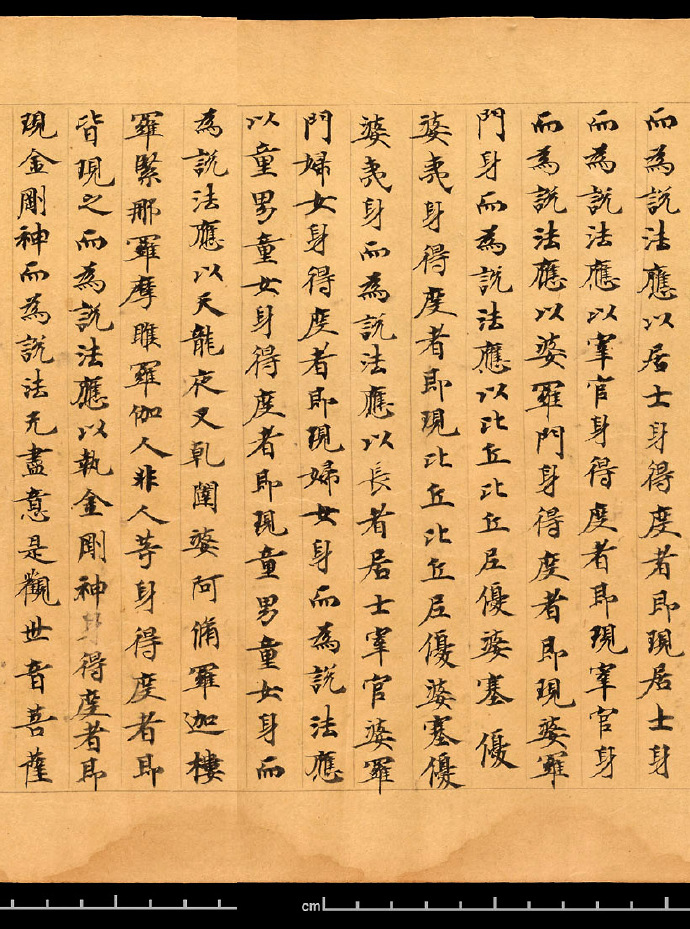 而為說法應以居士身得度者即現居士身
而為說法應以宰官身得度者即現宰官身
而為說法應以婆羅門身得度者即現婆羅
門身而為說法應以比丘比丘尼優婆塞優
婆夷身得度者即現比丘比丘尼優婆塞優
婆夷身而為說法應以長者居士宰官婆羅
門婦女身得度者即現婦女身而為說法應
以童男童女身得度者即現童男童女身而
為說法應以天龍夜叉乹闥婆阿脩羅迦樓
羅緊那羅摩睺羅伽人非人等身得度者即
皆現之而為說法應以執金剛神身得度者即
現金剛神而為說法无盡意是觀世音菩薩
cm